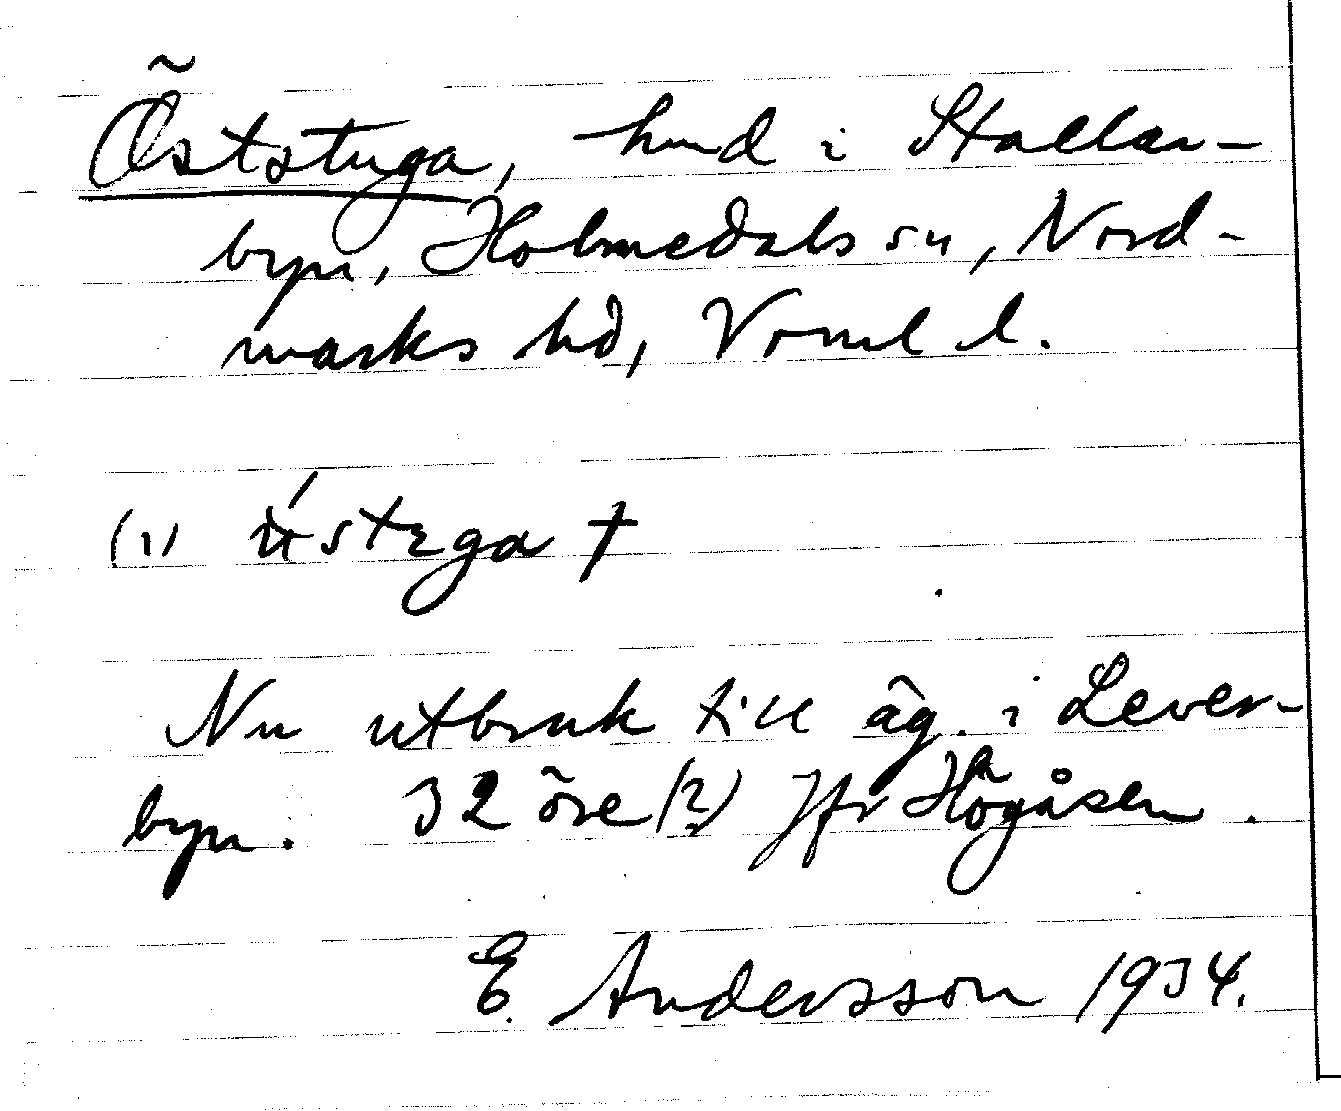 Öststuga, hmd i Stallar-
byn, Holmedals sn, Nord-
marks hd, Vrml l.
(1) östɛga †
Nu utbruk till äg. i Lever-
byn. 32 öre (?) Jfr Högåsen.
E. Andersson 1934.